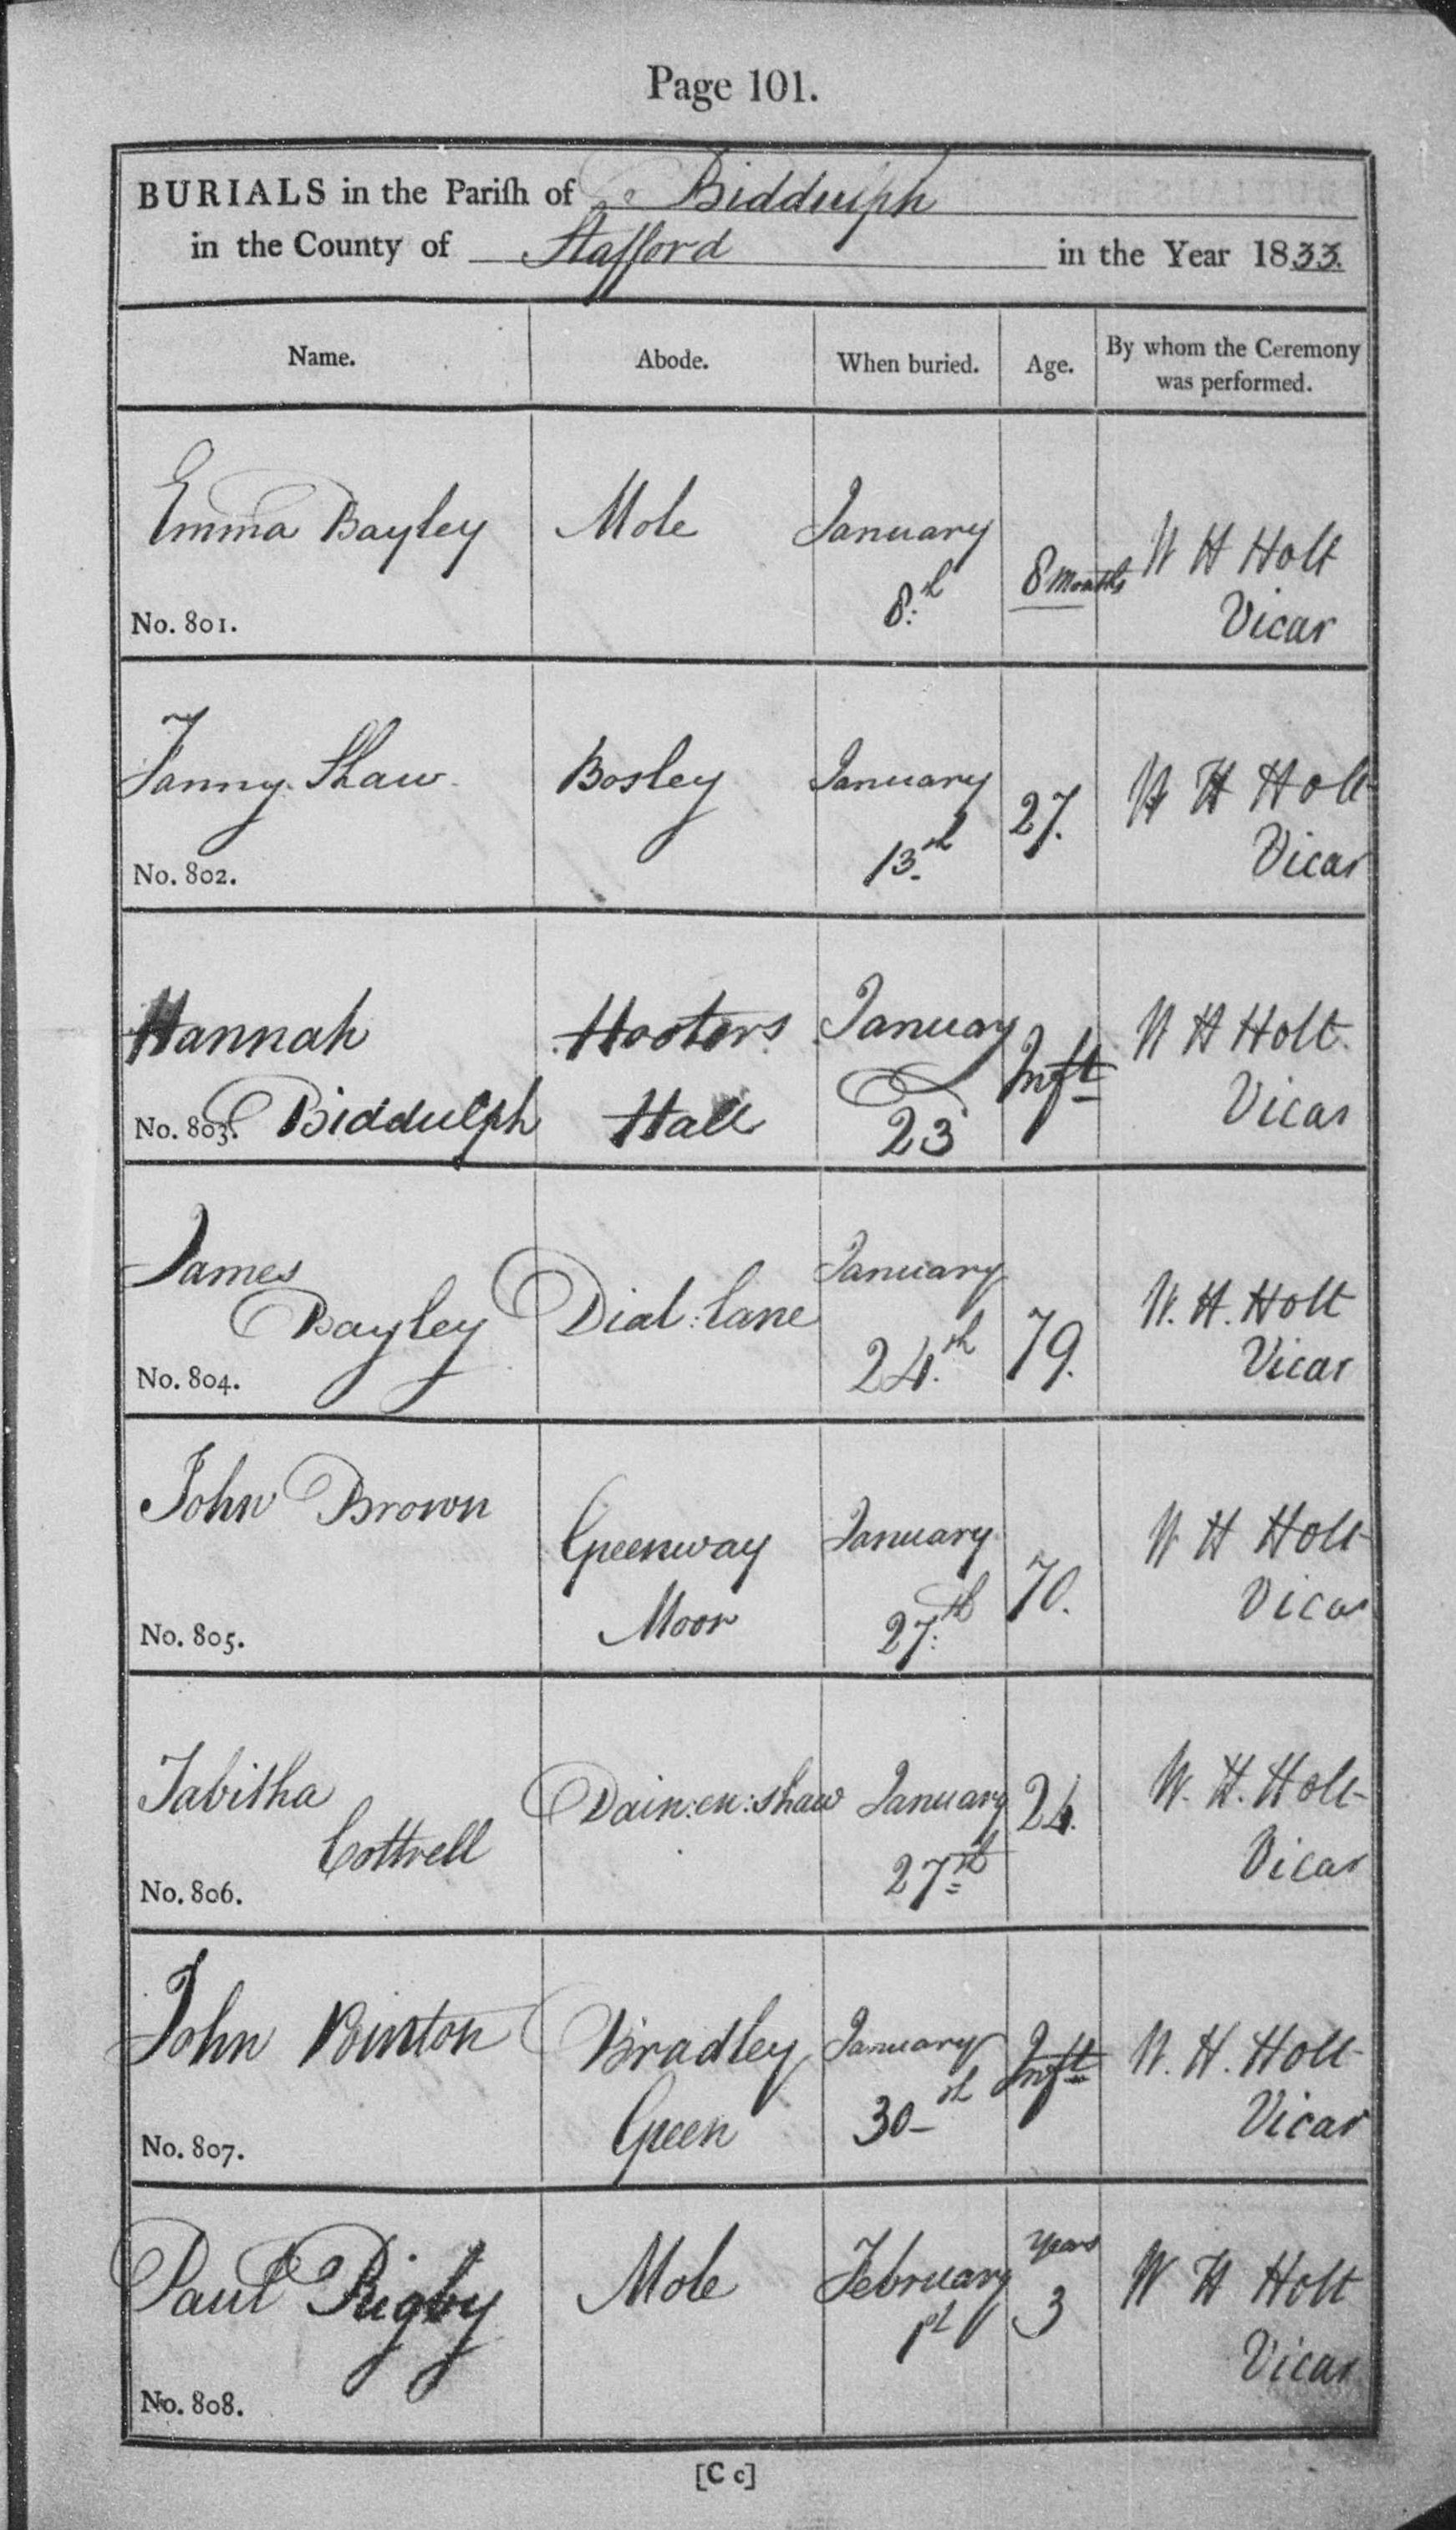 Page 101.
BURIALS in the Pariſh of Biddulph
in the County of Stafford in the Year 1833.
Name. Abode. When buried. Age. By whom the Ceremony was performed.
Emma Bayley Mole January 8th 8 months W H Holt Vicar
No. 801.
Fanny Shaw Bosley January 13th 27. W H Holt Vicar
No. 802.
Hannah Hooters January Inft W H Holt
No. 803. Biddulph Hall 23 Vicar
James Bayley Dial: lane January 24th 79. W. H. Holt Vicar
No. 804.
John Brown Greenway Moor January 27th 70. W H Holt Vicar
No. 805.
Tabitha Cottrell Dain:en:shaw January 27th 24. W. H. Holt Vicar
No. 806.
John Burton Bradley Green January 30th Inft W. H. Holt Vicar
No. 807.
Paul Rigby Mole February 1st Years 3 W H Holt Vicar
No. 808.
[C c]